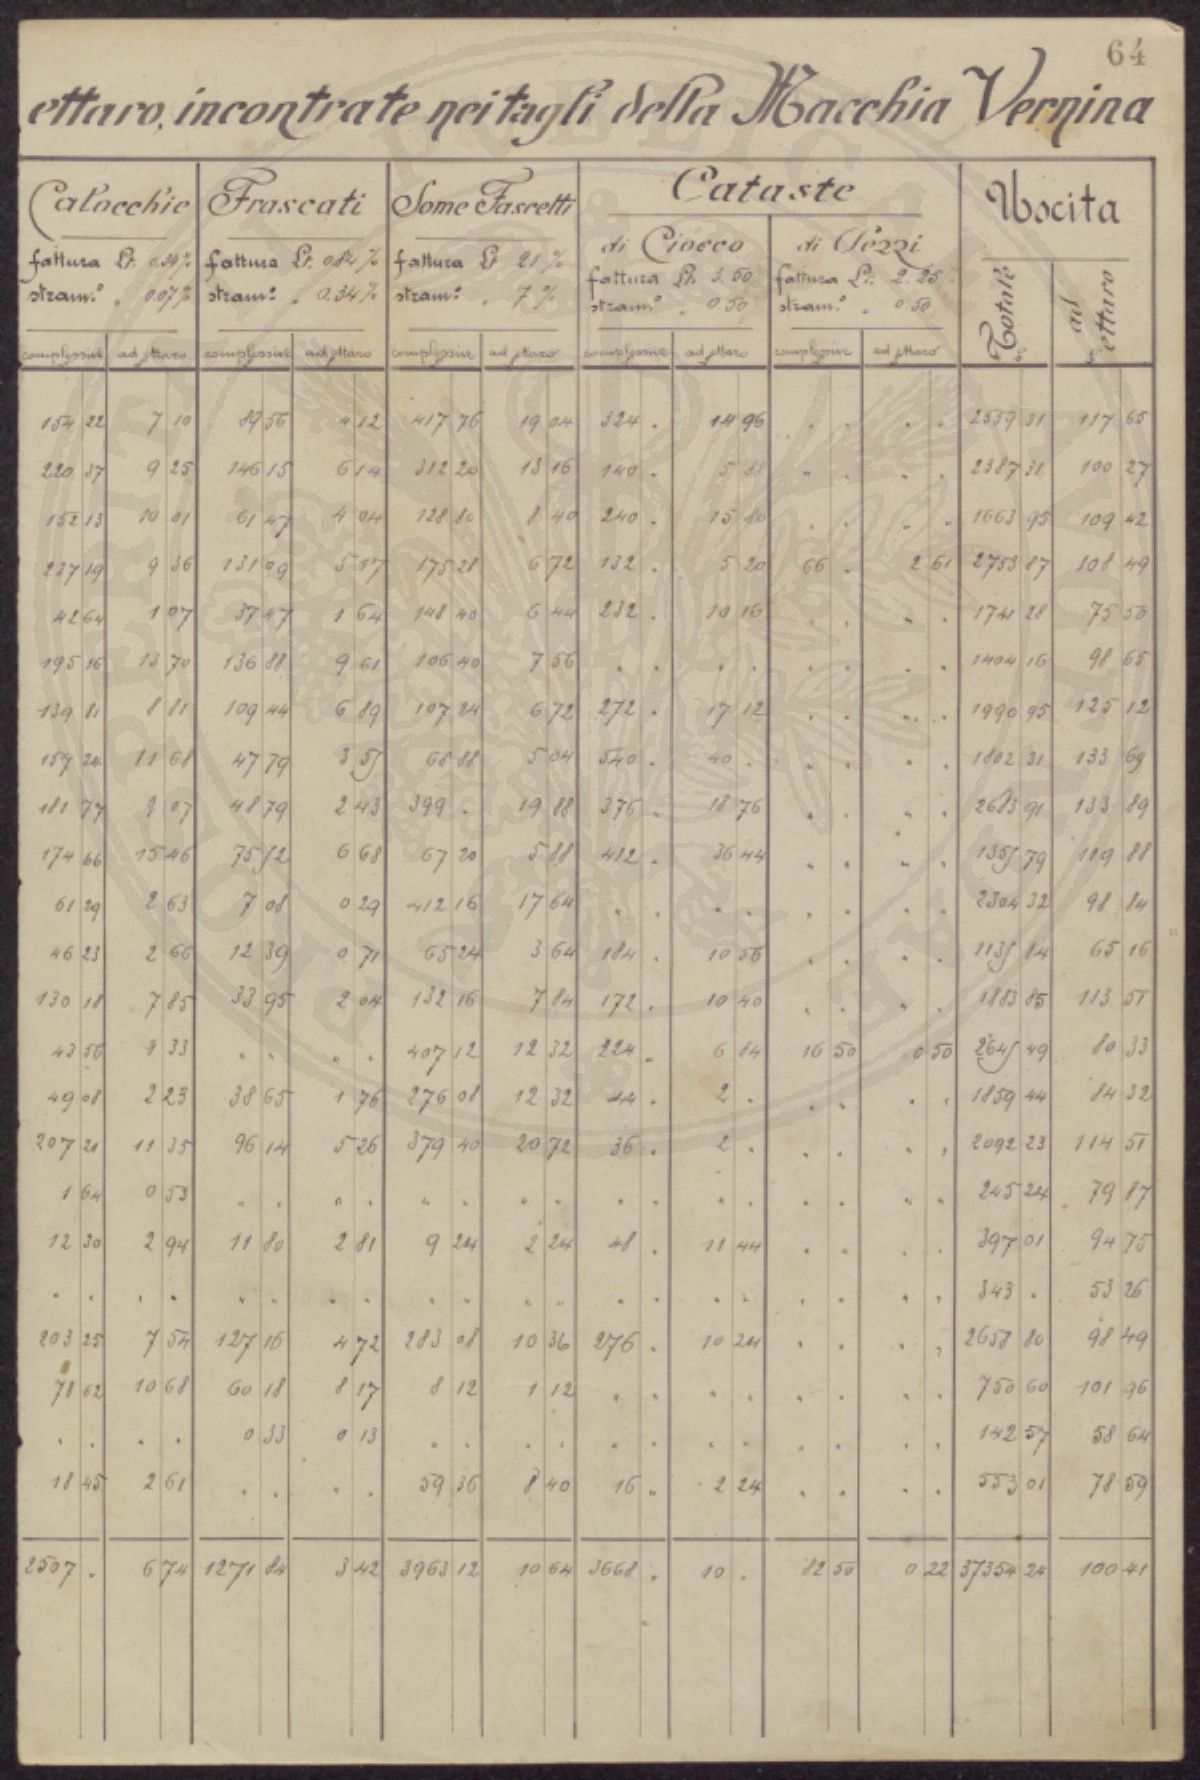 64
ettaro, incontrate nei tagli della Macchia Vernina
Calocchie Frascati Some Fascetti Cataste Uscita
di Ciocco di Pezzi
fattura Lt. 0.34% fattura Lt. 0.82% fattura Lt 21% fattura Lt. 3.50 fattura Lt. 2.25
stram.º " 0.07% stram.º " 0.34% stram.º " 7% stram.º " 0.50 stram.º " 0.50
Totale ad ettaro
complessive ad ettaro complessive ad ettaro complessive ad ettaro complessive ad ettaro complessive ad ettaro
154 22 7 10 89 56 4 12 417 76 19 04 324 . 14 96 . . . . 2559 31 117 65
220 37 9 25 146 15 6 14 312 20 13 16 140 . 5 88 " . . . 2387 31 100 27
152 13 10 01 61 47 4 04 128 80 8 40 240 . 15 80 . . . . 1663 95 109 42
237 19 9 36 131 09 5 17 175 28 6 72 132 . 5 20 66 . 2 61 2753 87 108 49
42 64 1 07 37 47 1 64 148 40 6 44 232 . 10 16 . . " . 1741 28 75 50
195 16 13 70 136 88 9 61 106 40 7 56 . . . . . . . . 1404 16 98 65
139 81 8 81 109 44 6 89 107 24 6 72 272 . 17 12 . . " . 1990 95 125 12
157 24 11 68 47 79 3 55 68 88 5 04 540 . 40 . . . . . 1802 31 133 69
181 77 9 07 48 79 2 43 399 . 19 88 376 . 18 76 . . . . 2683 91 133 89
174 66 15 46 75 52 6 68 67 20 5 88 412 . 36 44 " . " . 1355 79 119 88
61 29 2 63 7 08 0 29 412 16 17 64 . . . . . . . . 2304 32 98 84
46 23 2 66 12 39 0 71 65 24 3 64 184 . 10 56 . . . . 1135 84 65 16
130 18 7 85 33 95 2 04 132 16 7 84 172 . 10 40 . . . . 1883 85 113 51
43 56 1 33 . . . . 407 12 12 32 224 . 6 84 16 50 0 50 2645 49 80 33
49 08 2 23 38 65 1 76 276 08 12 32 44 . 2 . . . . . 1859 44 84 32
207 21 11 35 96 14 5 26 379 40 20 72 36 . 2 . . . . . 2092 23 114 51
1 64 0 53 . . " . " . . . . . . . . . " . 245 24 79 87
12 30 2 94 11 80 2 81 9 24 2 24 48 . 11 44 . . . . 397 01 94 75
. . . . . . . . . . . . . . . . . . 343 . 53 26
203 25 7 54 127 16 4 72 283 08 10 36 276 . 10 24 . . . . 2658 80 98 49
78 62 10 68 60 18 8 17 8 12 1 12 . . . . . . . . 750 60 101 96
. . . . 0 33 0 13 . . . . . . . . . . . . 142 57 58 64
18 45 2 61 . . . . 59 36 8 40 16 . 2 24 . . . . 553 01 78 59
2507 . 6 74 1271 84 3 42 3963 12 10 64 3668 . 10 . 82 50 0 22 37354 24 100 41